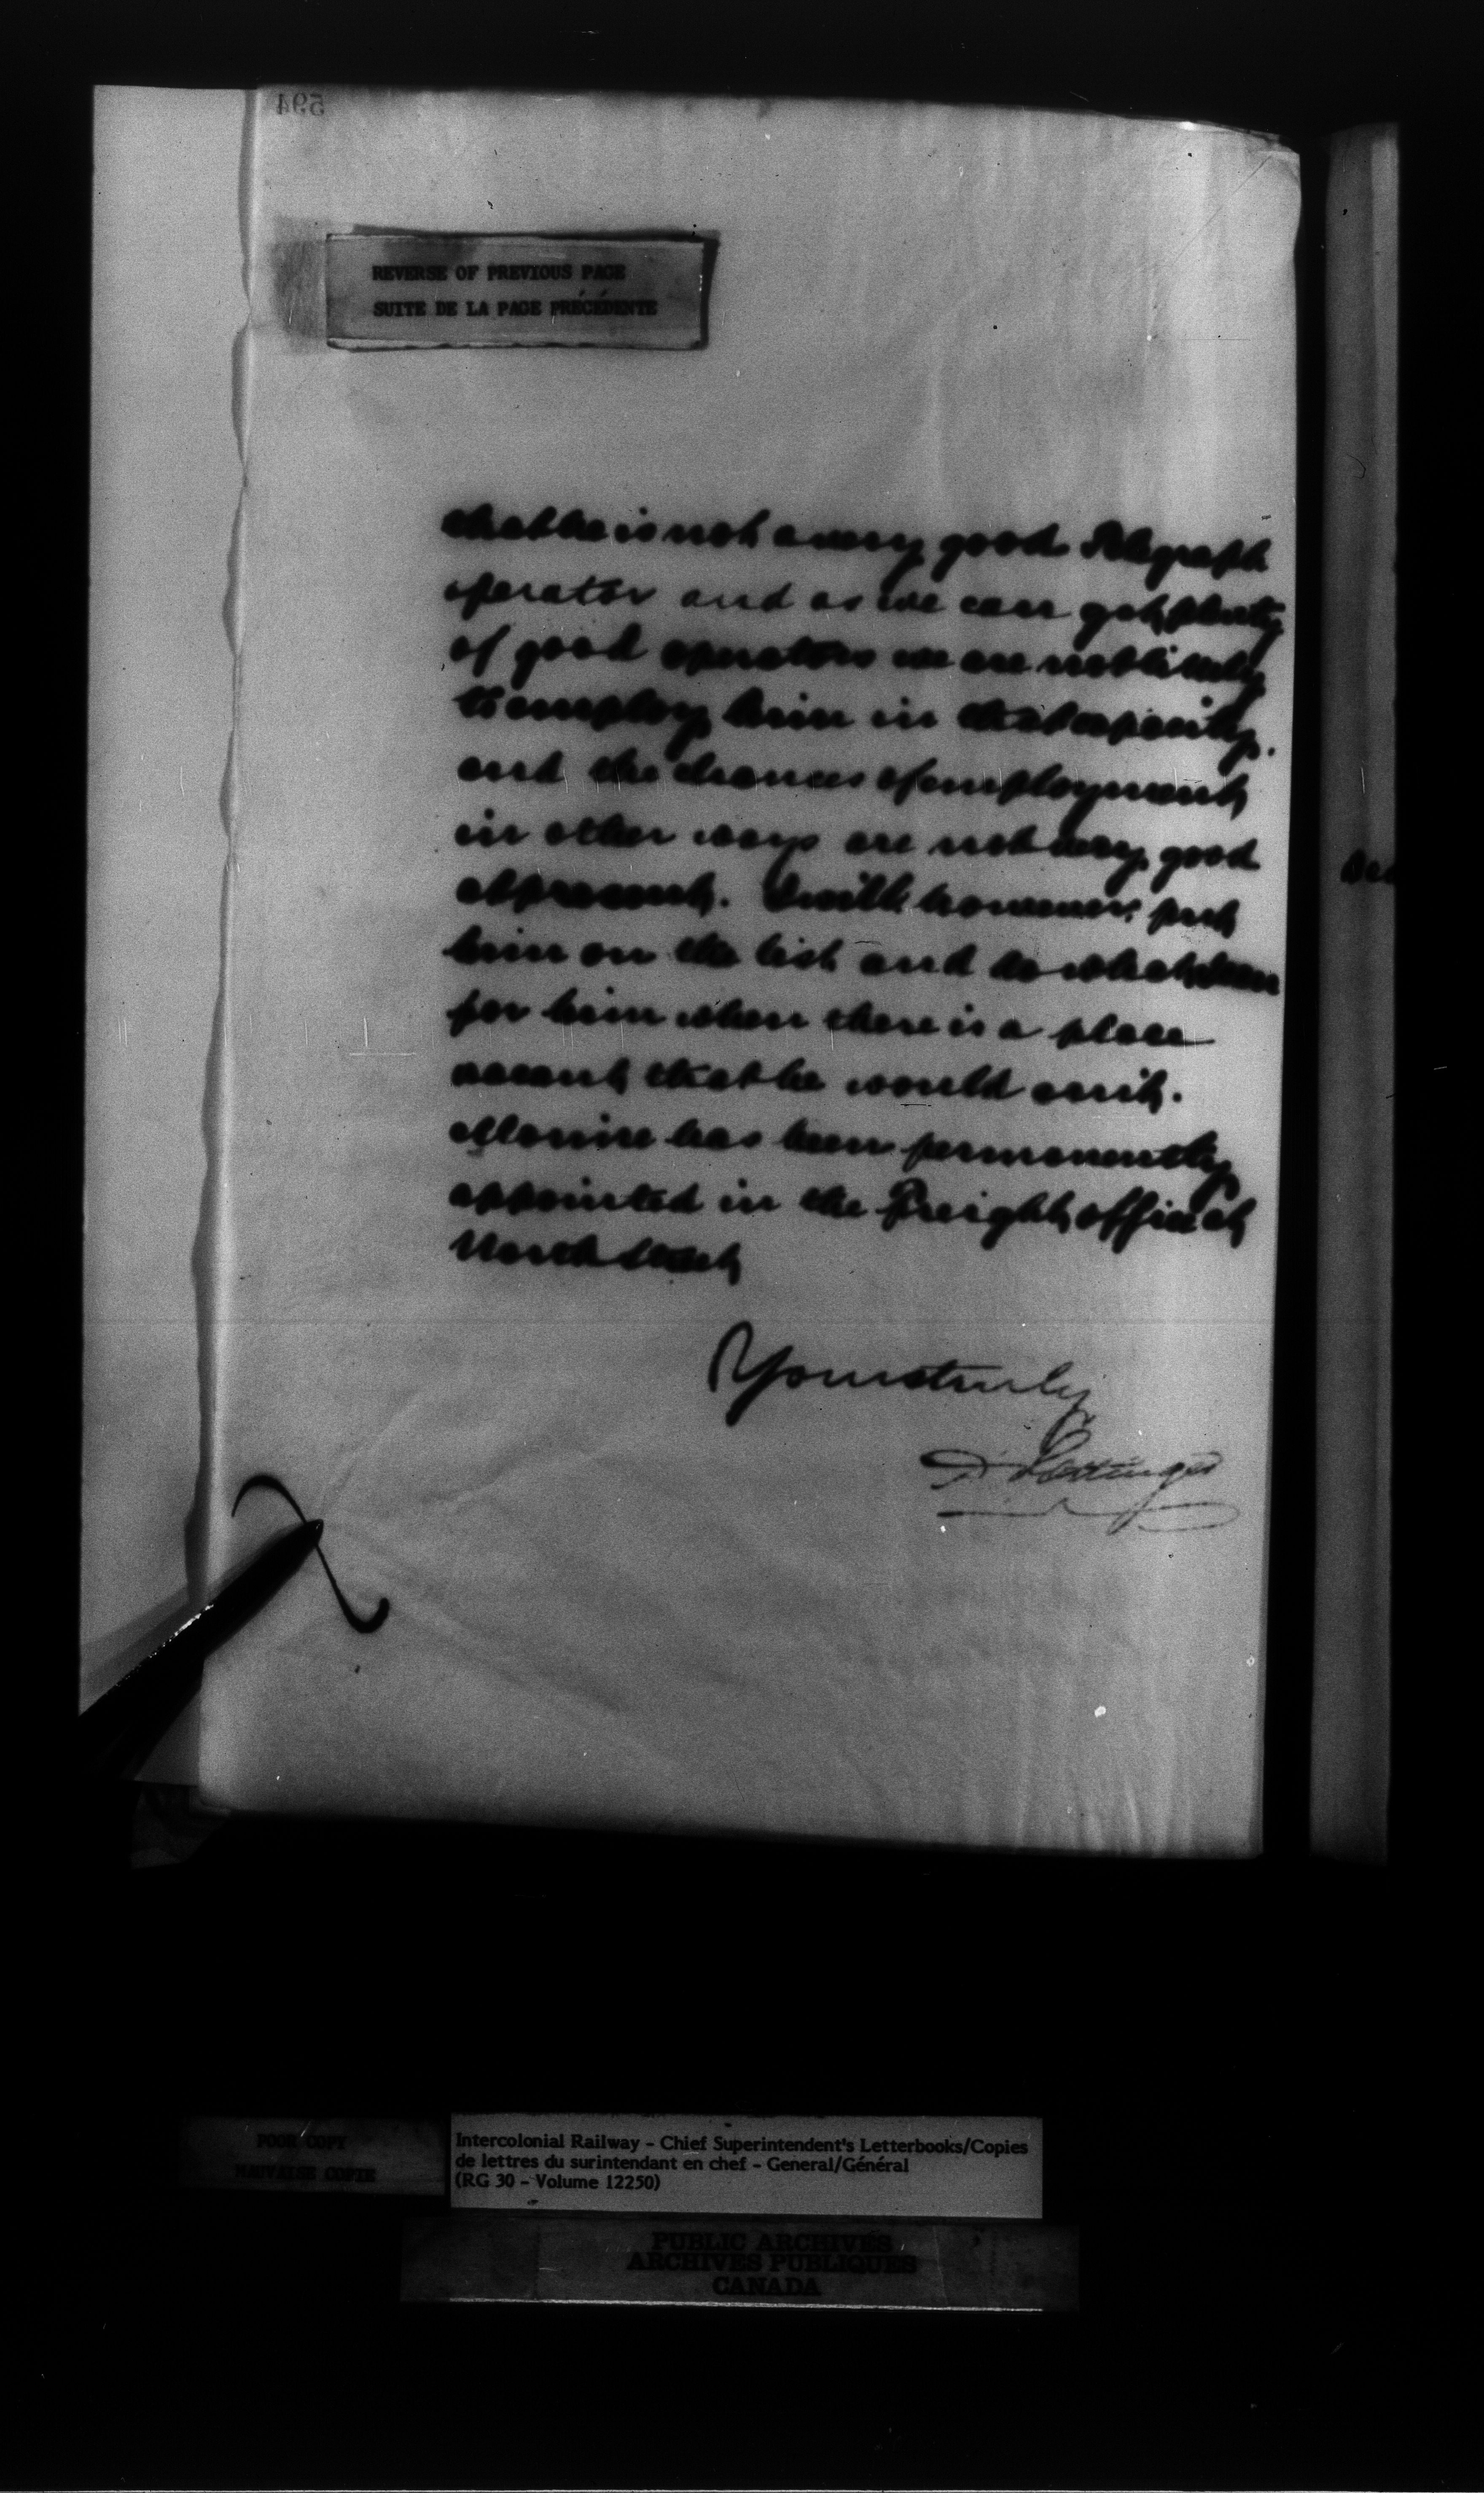 594
REVERSE OF PREVIOUS PAGE
SUITE DE LA PAGE PRÉCÉDENTE
that he is not a very good Telegraph
operator and as we can get plenty
of good operators we are not likely
to employ him in that capacity.
and the chances of employment
in other ways are not very good
at present. I will however put
him on the list and do what I can
for him when there is a place
vacant that he would suit.
has been permanently
appointed in the Freight office at
Yours truly
D Pottinger
POOR COPY
MAUVAISE COPIE
Intercolonial Railway - Chief Superintendent's Letterbooks/Copies
de lettres du surintendant en chef - General/Général
(RG 30 - Volume 12250)
PUBLIC ARCHIVES
ARCHIVES PUBLIQUES
CANADA